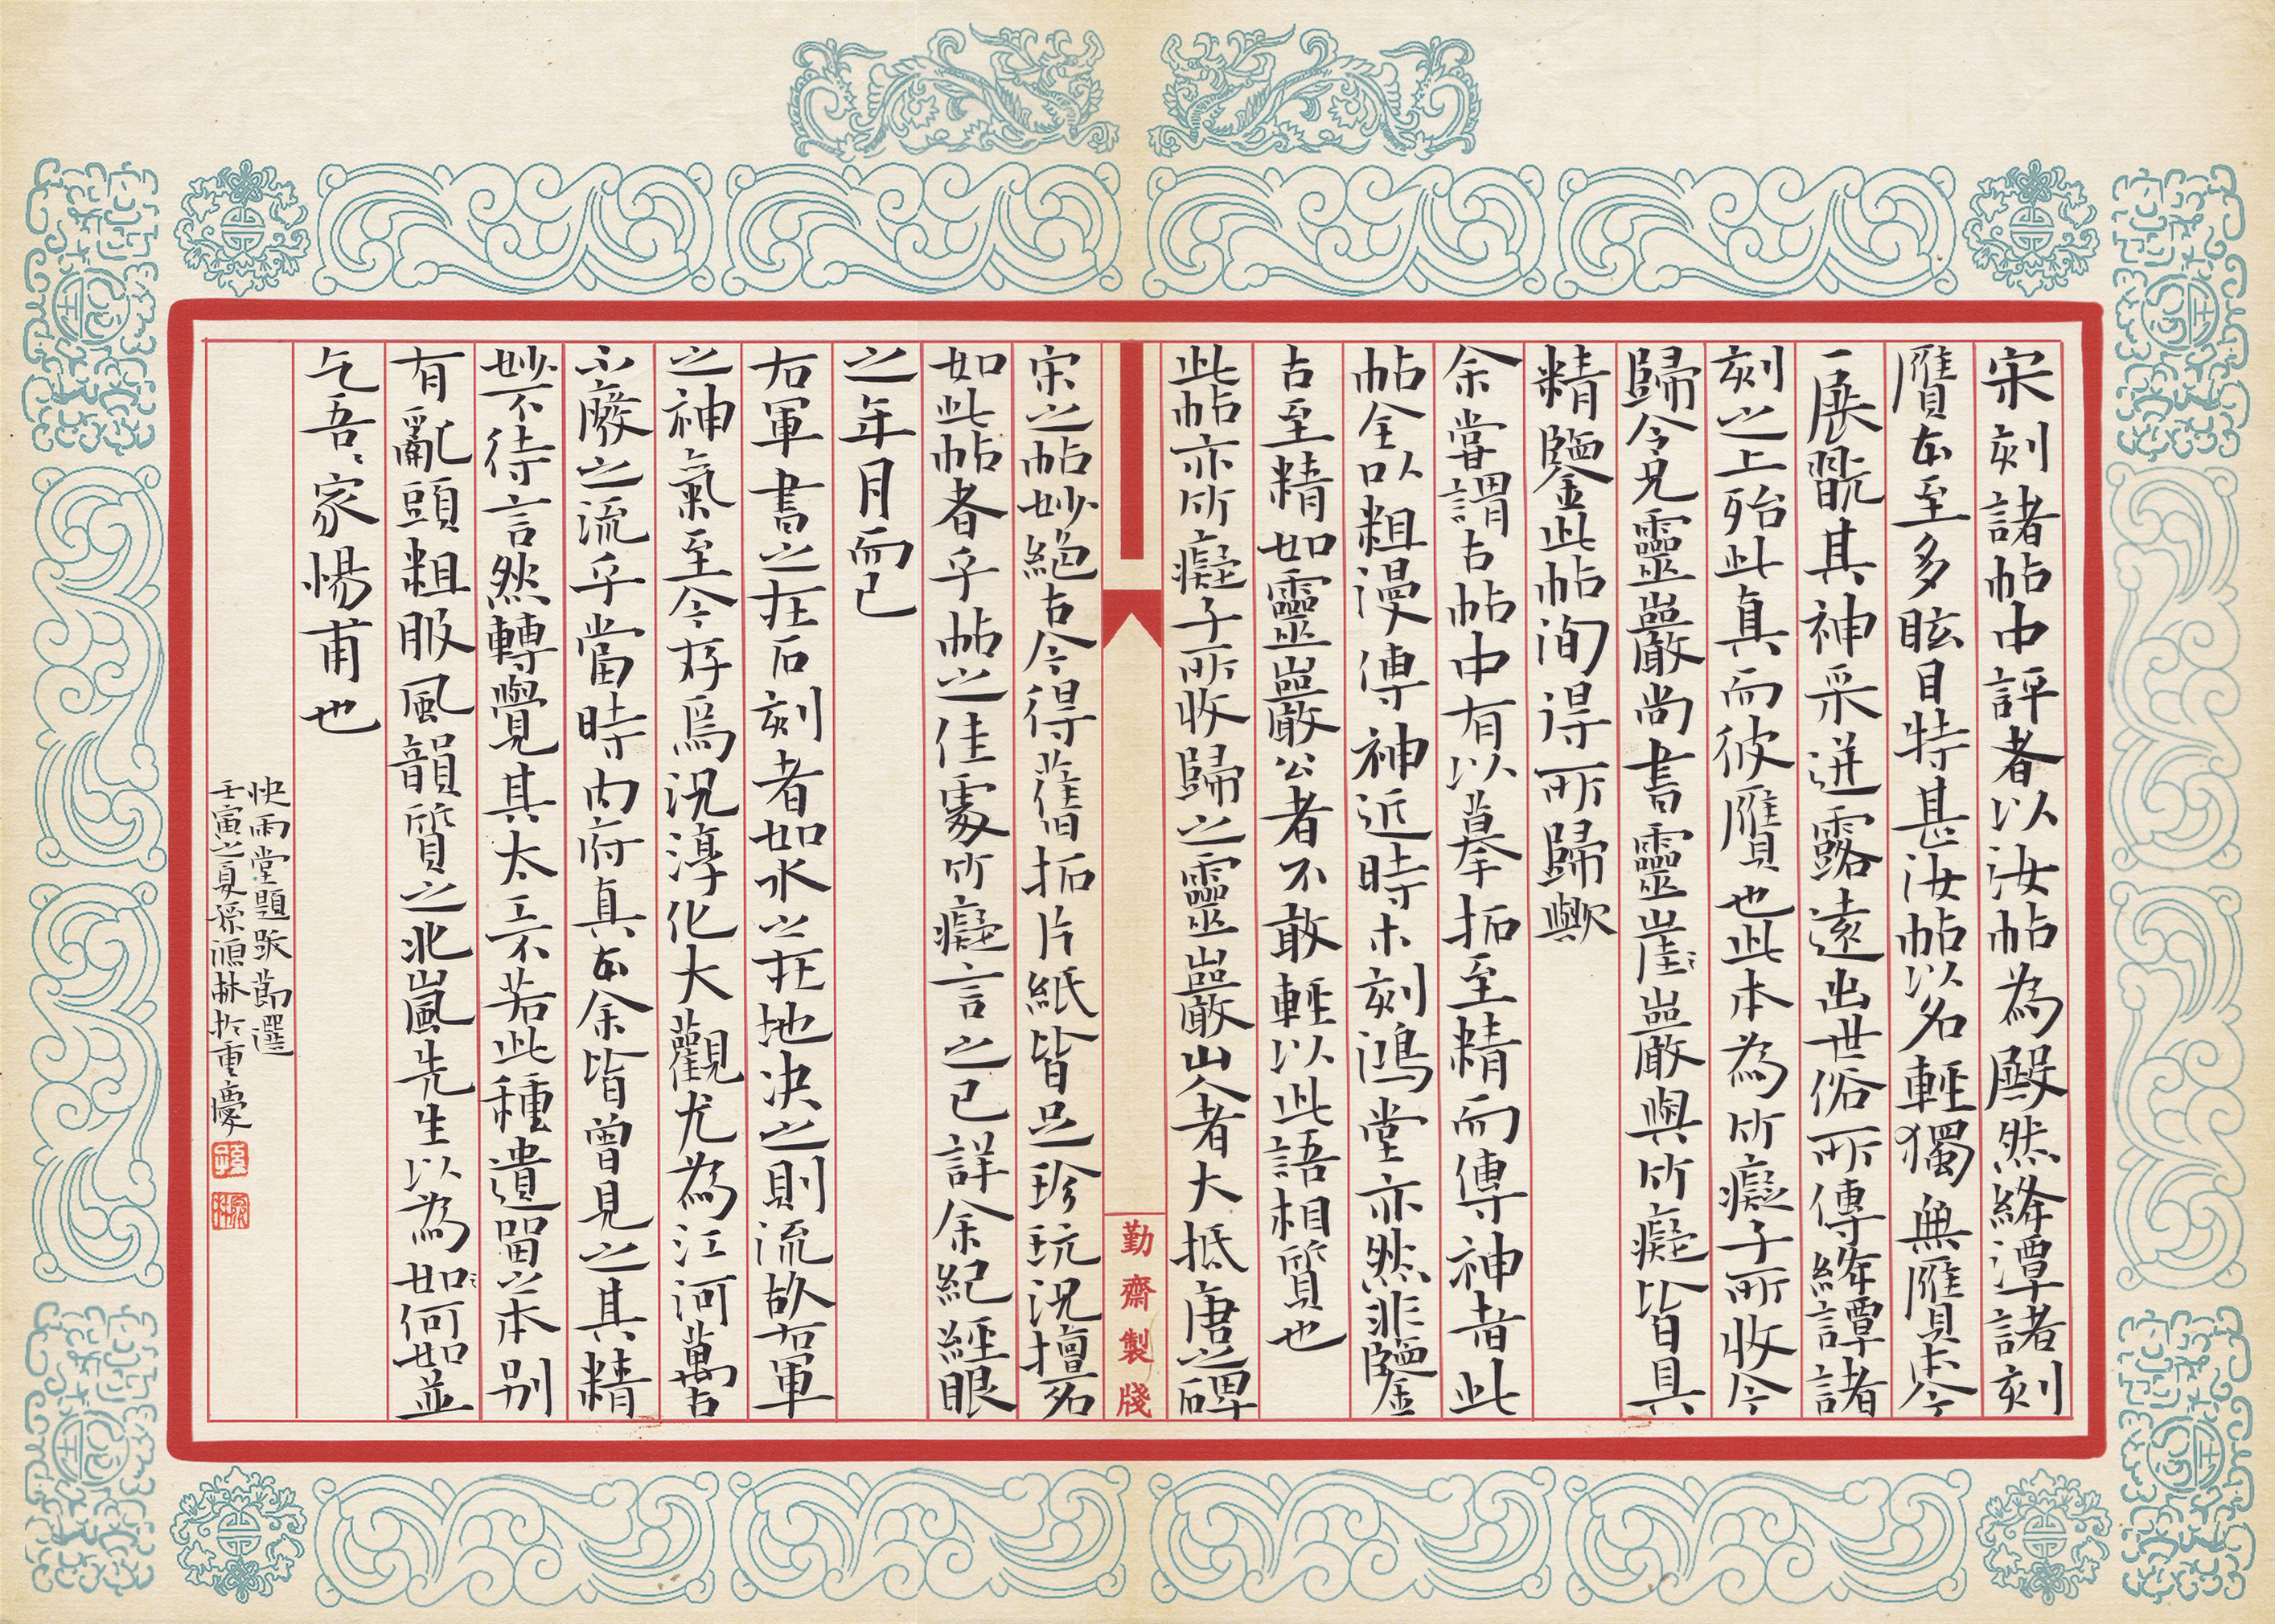 宋刻諸帖中評者以汝帖為殿然絳潭諸刻
贋本至多眩目特甚汝帖以名輕獨無贋本今
一展翫其神采迸露遠出世俗所傳絳譚諸
刻之上殆此真而彼贋也此本為竹癡子所收今
歸令兄靈巖尚書靈崖〻巖與竹癡皆具
精鑒此帖洵得所歸歟
余嘗謂古帖中有以摹拓至精而傳神者此
帖全以粗漫傳神近時木刻鴻堂亦然非鑒
古至精如靈巖公者不敢輕以此語相質也
此帖亦竹癡子所收歸之靈巖山人者大抵唐之碑
宋之帖妙絕古今得舊拓片紙皆足珍玩況擅名
如此帖者乎帖之佳處竹癡言之已詳余紀經眼
之年月而已
右軍書之在石刻者如水之在地決之則流故右軍
之神氣至今存焉況淳化大觀尤為江河萬古
不廢之流乎當時內府真本余皆曾見之其精
妙不待言然轉覺其太工不若此種遺留之本別
有亂頭粗服風韻質之北嵐先生以為如〻何如並
乞吾〻家惕甫也
快雨堂題跋節選
壬寅之夏孫源林於重慶
勤齋製牋